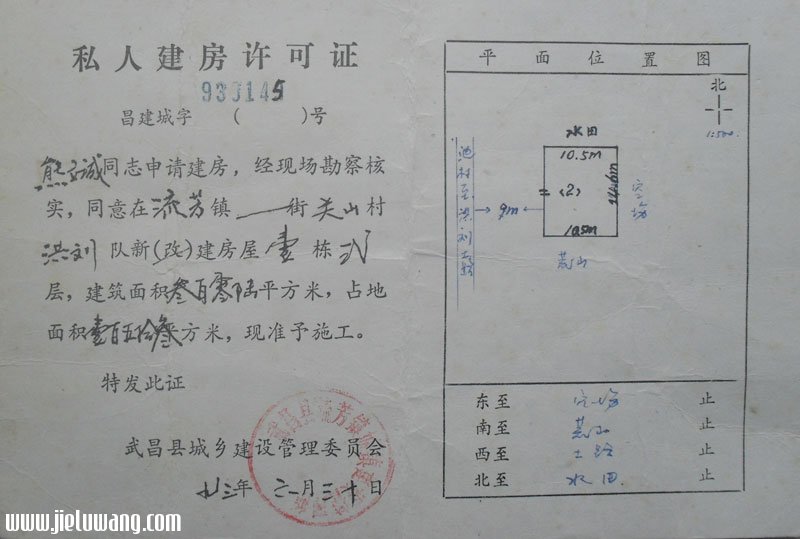 私人建房许可证
930145
昌建城字 ( )号
熊文诚同志申请建房，经现场勘察核
实，同意在流芳镇 街关山村
洪刘队新(改)建房屋壹栋弍
层，建筑面积叁百零陆平方米，占地
面积壹百五拾叁平方米，现准予施工。
特发此证
武昌县城乡建设管理委员会
九三年 月三十日
平面位置图
北
1:500
水田
10.5m
14.6m
=(2)
空场
9m
10.5m
荒山
东至 空场 止
南至 荒山 止
西至 土路 止
北至 水田 止
www.jieluwang.com